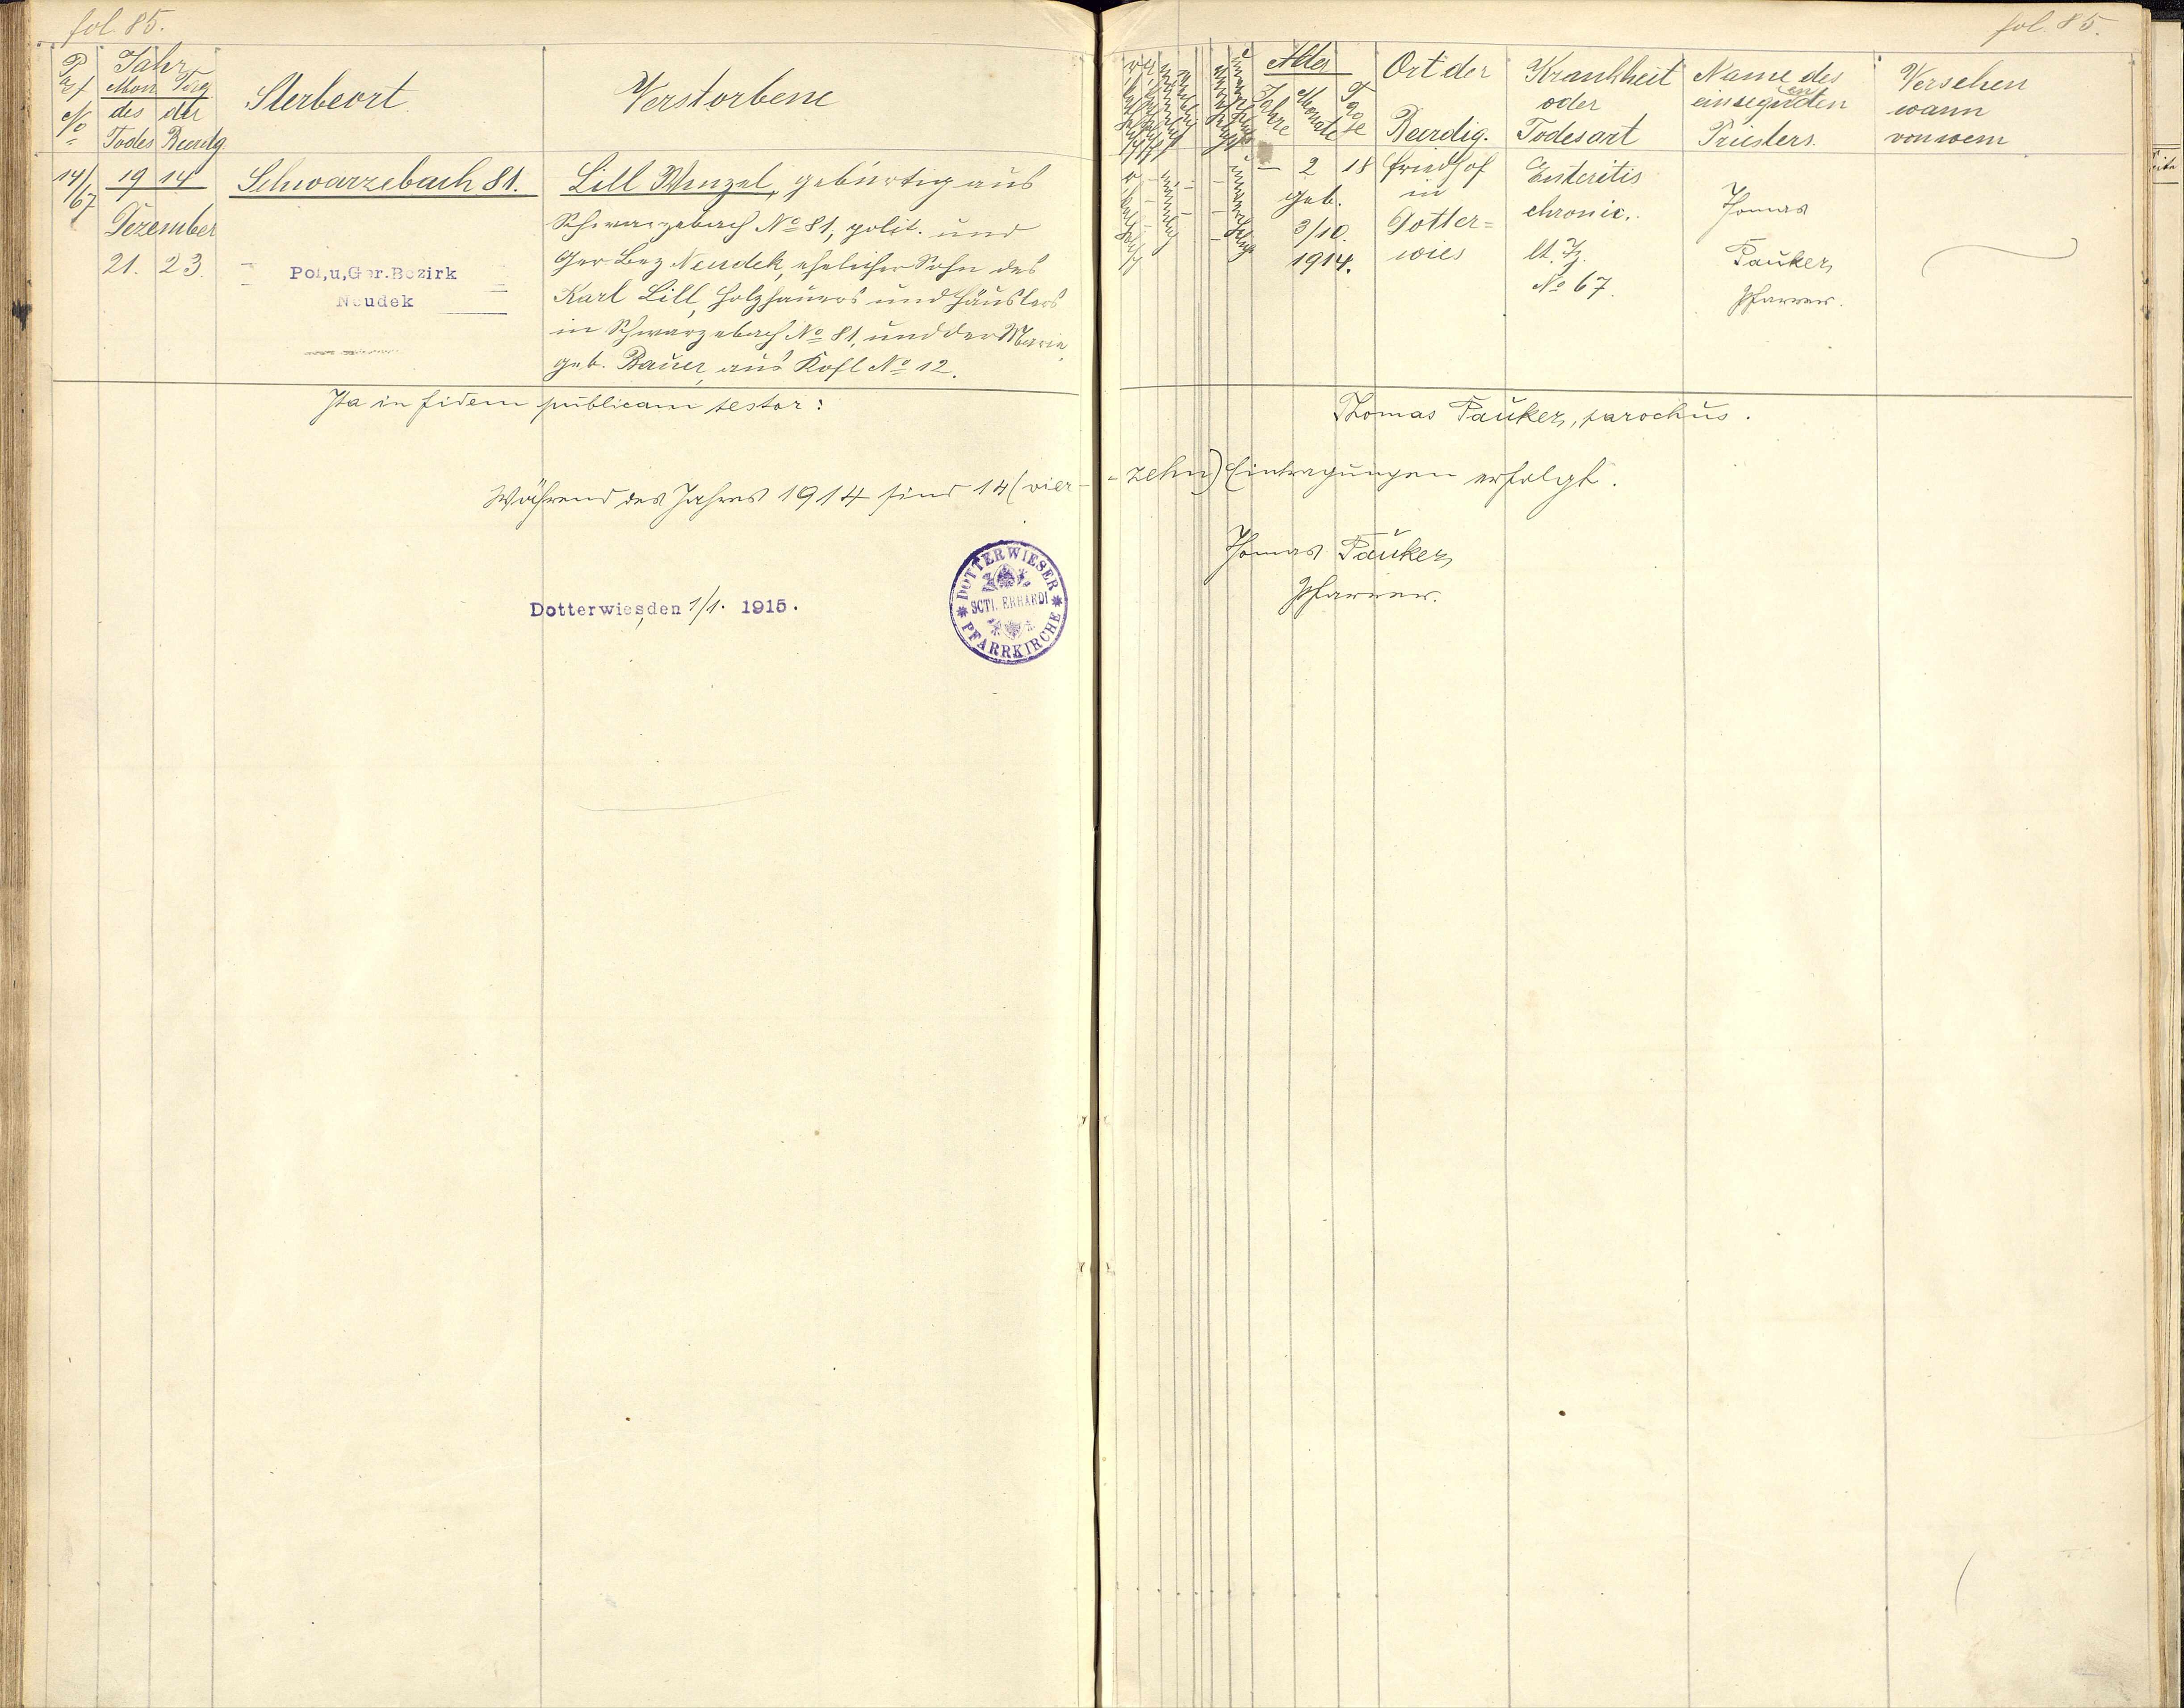 fol. 85.
Jahr
Mon Tag
des der
Todes Beerdg
Sterbeort
Verstorbene
14/67
19 14
Dezember
21. 23.
Schwarzebach 81.
Pol,u,Ger.Bezirk
Neudek
Lill Wenzel, gebürtig aus
Schwarzebach No 81, polit. und
Ger Bez Neudek, ehelicher Sohn des
Karl Lill, Holzhauers und Häuslers
in Schwarzebach No 81, und der Marie,
geb. Bauer, aus Kofl No 12.
Ita in fidem publicam testor:
Während des Jahres 1914 sind 14 (vier-
Dotterwies,den 1/1. 1915.
DOTTERWIESER
SCTI. ERHARDI
PFARRKIRCHE
fol. 85.
Alter
Jahre
Monate
Tage
Ort der
Beerdig.
Krankheit
oder
Todesart
Name des
einsegnenden
Priesters.
Versehen
wann
von wem
katholisch
männlich
– 2 18
geb.
3/10.
1914.
Friedhof
in
Dotter=
wies
Enteritis
chronic.
lt. Z.
No 67.
Thomas
Pauker,
Pfarrer.
Thomas Pauker, parochus.
-zehn) Eintragungen erfolgt.
Thomas Pauker,
Pfarrer.